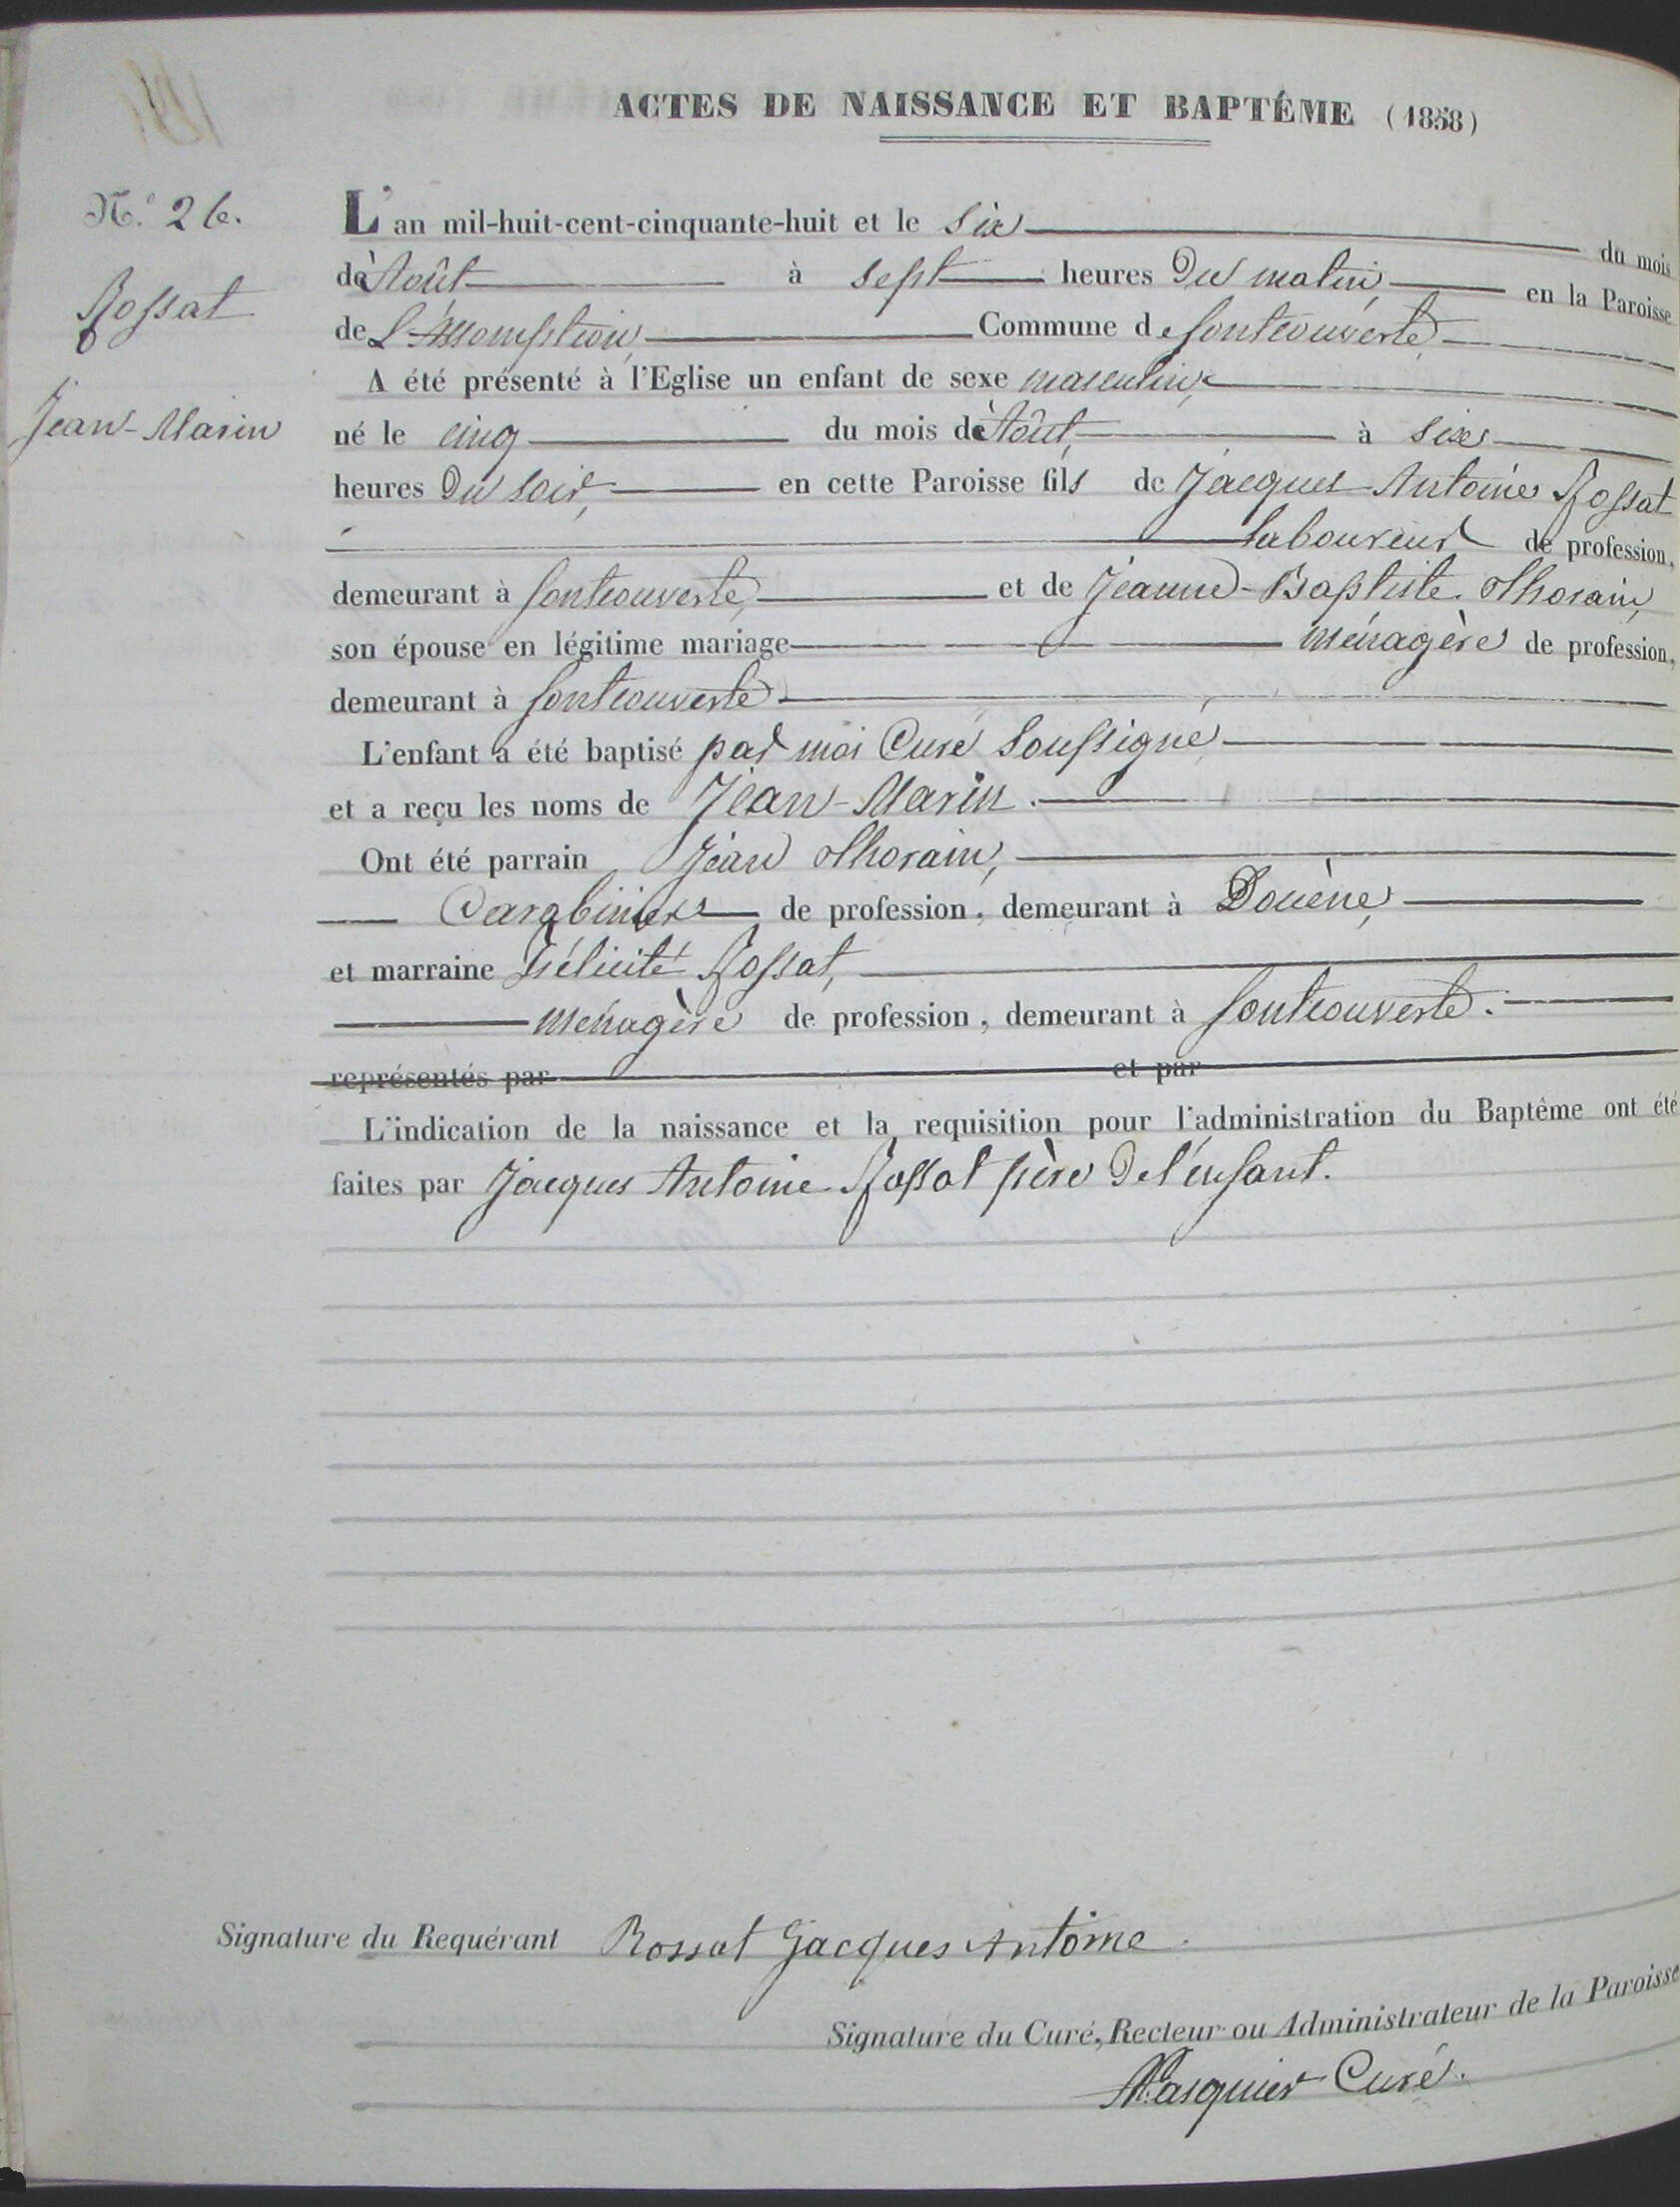 ACTES DE NAISSANCE ET BAPTÊME (1858)
N.º 26.
Rossat
Jean-Marin
L'an mil-huit-cent-cinquante-huit et le six du mois
d'Août à sept heures du matin, en la Paroisse
de L'Assomption, Commune de Fontcouverte
A été présenté à l'Eglise un enfant de sexe masculin,
né le cinq du mois d'Août, à six
heures du soir, en cette Paroisse fils de Jacques Antoine Rossat
laboureur de profession,
demeurant à Fontcouverte, et de Jeanne-Baptiste Thorain,
son épouse en légitime mariage ménagère de profession,
demeurant à Fontcouverte
L'enfant a été baptisé par moi Curé soussigné
et a reçu les noms de Jean-Marin.
Ont été parrain Jean Thorain,
Carabinier de profession, demeurant à Douène,
et marraine Félicité Rossat,
ménagère de profession, demeurant à Fontcouverte.
représentés par et par
L'indication de la naissance et la requisition pour l'administration du Baptême ont été
faites par Jacques Antoine Rossat père de l'enfant.
Signature du Requérant Rossat Jacques Antoine
Signature du Curé, Recteur ou Administrateur de la Paroisse
Pasquier Curé.